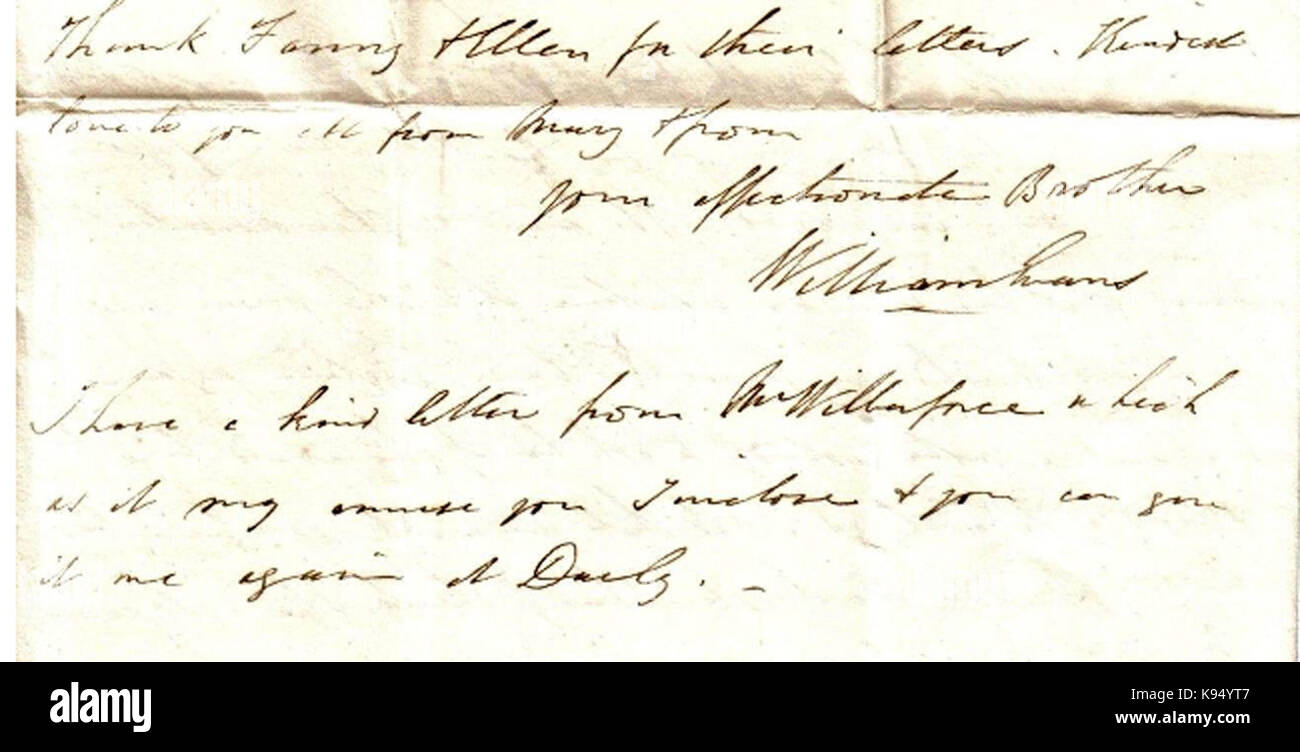 Thank Fanny & Ellen for their letters. Kindest
love to you all from Mary & from
your affectionate Brother
William Evans
I have a kind letter from Mr Wilberforce which
as it may amuse you I inclose & you can give
it me again at Darly. –
alamy
Image ID: K94YT7
www.alamy.com